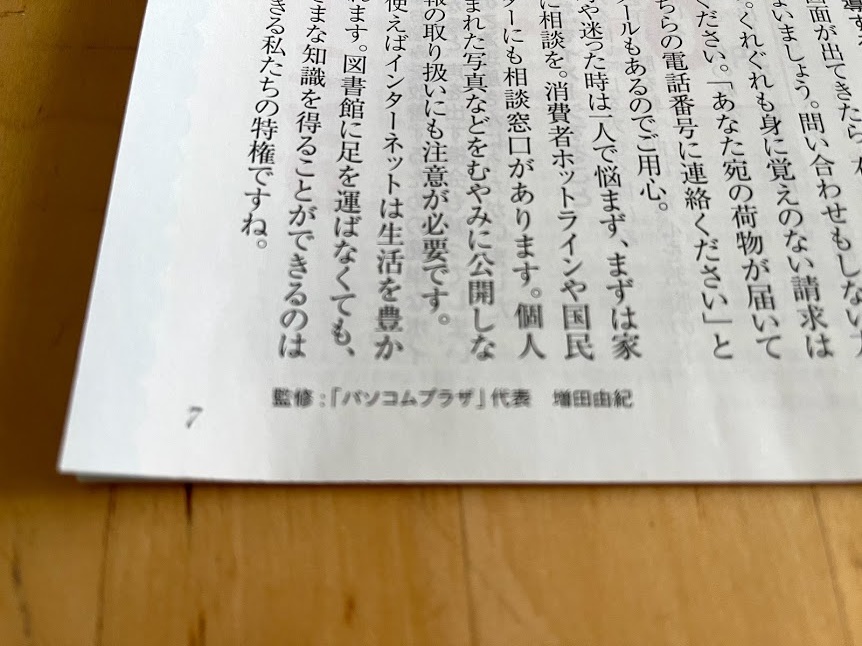 導する
画面が出てきたら、
ないましょう。問い合わせもしない
。くれぐれも身に覚えのない請求は
ください。「あなた宛の荷物が届いて
ちらの電話番号に連絡ください」と
ールもあるのでご用心。
や迷った時は一人で悩まず、まずは家
に相談を。消費者ホットラインや国民
ターにも相談窓口があります。個人
まれた写真などをむやみに公開しな
報の取り扱いにも注意が必要です。
使えばインターネットは生活を豊か
れます。図書館に足を運ばなくても、
ざまな知識を得ることができるのは
きる私たちの特権ですね。
監修:「パソコムプラザ」代表 増田由紀
7